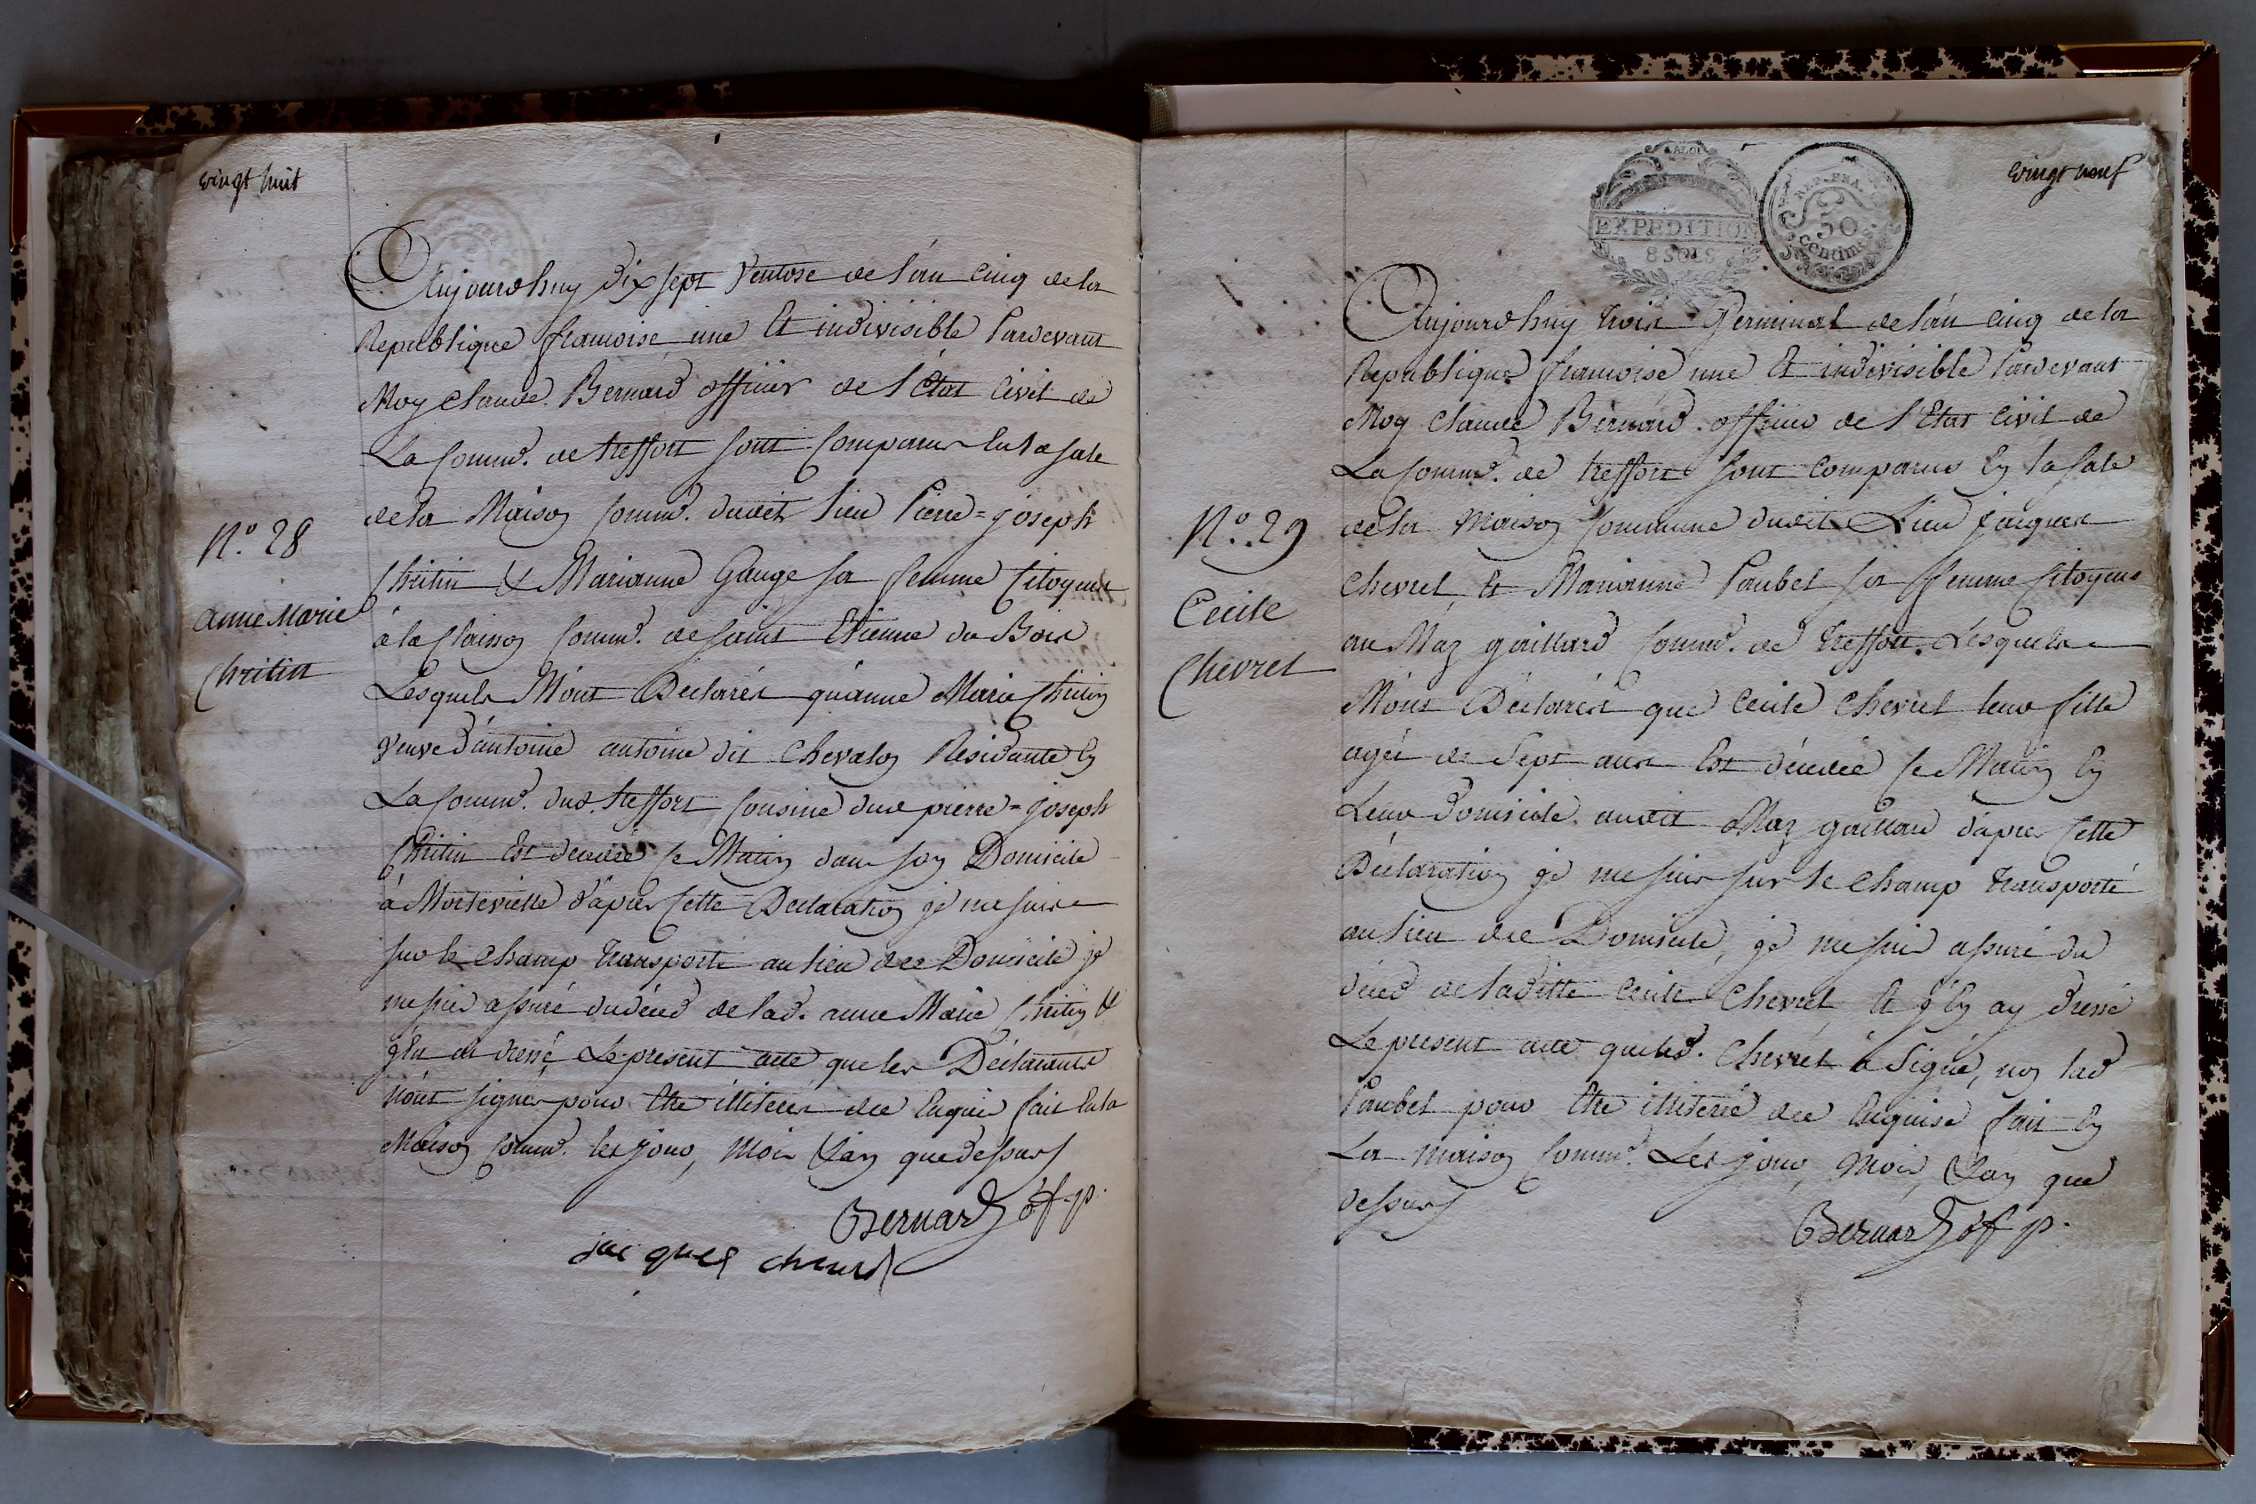 vingt huit
Aujourdhuy dix sept Ventose de l'an cinq de la
Republique francoise une et indivisible Pardevant
Moy Claude Bernard officier de l'Etat Civil de
La Commd. de treffort sont Comparus En la sale
de la Maison Commd. dudit lieu Pierre=joseph
Chritin & Marianne Gauge sa femme Citoyens
à la Claison Commd. de saint Etienne du Bois
Lesquels M'ont Déclarés qu'anne Marie Chritin
Veuve d'antoine antoine dit Chevalon Residante En
La Commd. dud. treffort Cousine dud pierre=joseph
Chritin Est decedée ce Matin dans son Domicile
à Montevielle d'aprés Cette Declaration je me suis
sur le champ transporté au lieu dce Domicile je
me suis assuré du décéd de lad. anne Marie Chritin &
j'En ai dressé Le present acte que les Déclarants
n'ont signés pour Etre illiterés dce Enquis fait En la
Maison Commd. les jour, Mois & an que dessus
Bernard of. p.
jacques chevret
N.º 28
anne Marie
Chritin
vingt neuf
EXPEDITION
8 SOLS
REP. FRA.
50
centimes
Aujourdhuy trois Germinal de l'an cinq de la
Republique francoise une et indivisible Pardevant
Moy Claude Bernard officier de l'Etat Civil de
La Commd. de treffort sont Comparus En la sale
de la Maison Commune dudit Lieu jacques
Chevret et Marianne Paubel sa femme Citoyens
au Maz gaillard Commd. de treffort. Lesquels
M'ont Déclarés que Cecile Chevret leur fille
agée de Sept ans Est décedée ce Matin En
Leur Domicile audit Maz gaillard d'aprés Cette
Déclaration je me suis sur le champ transporté
au lieu dce Domicile, je me suis assuré du
décéd de laditte Cecile Chevret et j'En ay dressé
Le present acte que led. Chevret à Signé, non lad
Paubel pour Etre illiterée dce Enquise fait En
La maison Commd. Les jour, Mois, & an que
dessus
Bernard of. p.
N.º 29
Cecile
Chevret